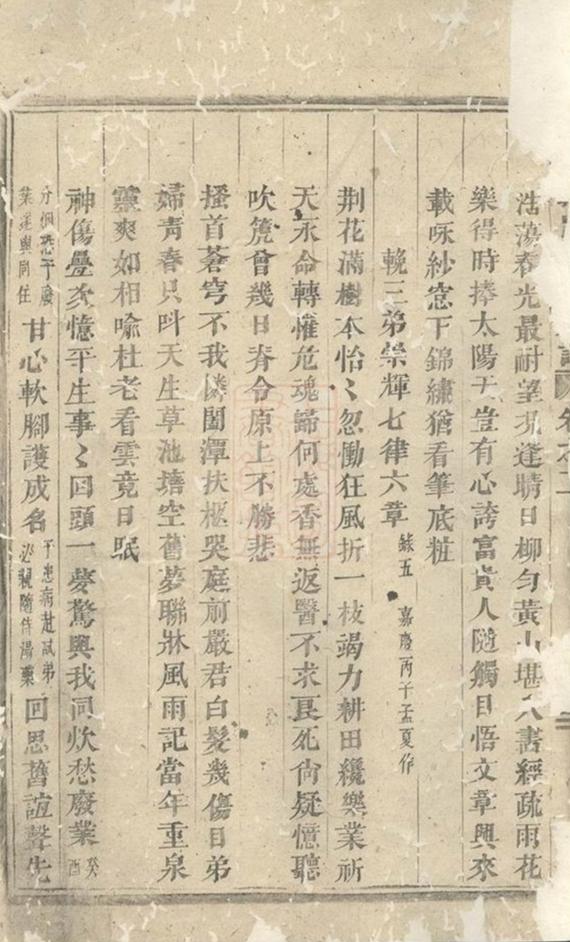 浩蕩春光最耐望况逢晴日柳勻黃山堪入畫經疏雨花
樂得時捧太陽天豈有心誇富貴人隨觸目悟文章興來
載咏紗窓下錦繡猶看筆底粧
輓三弟崇輝七律六章 錄五 嘉慶丙子孟夏作
荆花滿樹本怡〻忽慟狂風折一枝竭力耕田纔樂業祈
天永命轉懼危魂歸何處香無返醫不求良死尙疑憶聽
吹箎曾幾日脊令原上不勝悲
搔首蒼穹不我憐閶潭扶柩哭庭前嚴君白髮幾傷目弟
婦靑春只呌天生草池塘空舊夢聯牀風雨記當年重泉
靈爽如相喻杜老看雲竟日眠
神傷疊次憶平生事〻回頭一夢驚與我同炊愁廢業 癸酉
分個恐予廢業遂與同住 甘心軟脚護成名 予患病赴試弟必親隨侍湯藥 回思舊誼聲先